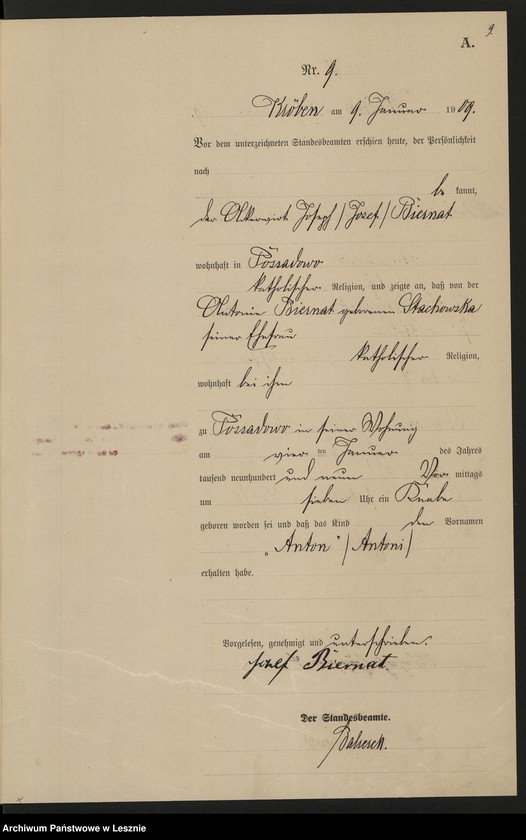 9.
A.
Nr. 9.
Kröben am 9. Januar 1909.
Vor dem unterzeichneten Standesbeamten erschien heute, der Persönlichkeit
nach
be kannt,
der Ackerwirt Joseph /Jozef/ Biernat
wohnhaft in Possadowo
katholischer Religion, und zeigte an, daß von der
Antonie Biernat geborenen Stachowska
seiner Ehefrau
katholischer Religion,
wohnhaft bei ihm
zu Possadowo in seiner Wohnung
am vier ten Januar des Jahres
tausend neunhundert und neun Vor mittags
um sieben Uhr ein Knabe
geboren worden sei und daß das Kind den Vornamen
„Anton" /Antoni/
erhalten habe.
Vorgelesen, genehmigt und unterschrieben.
Josef Biernat.
Der Standesbeamte.
Archiwum Państwowe w Lesznie